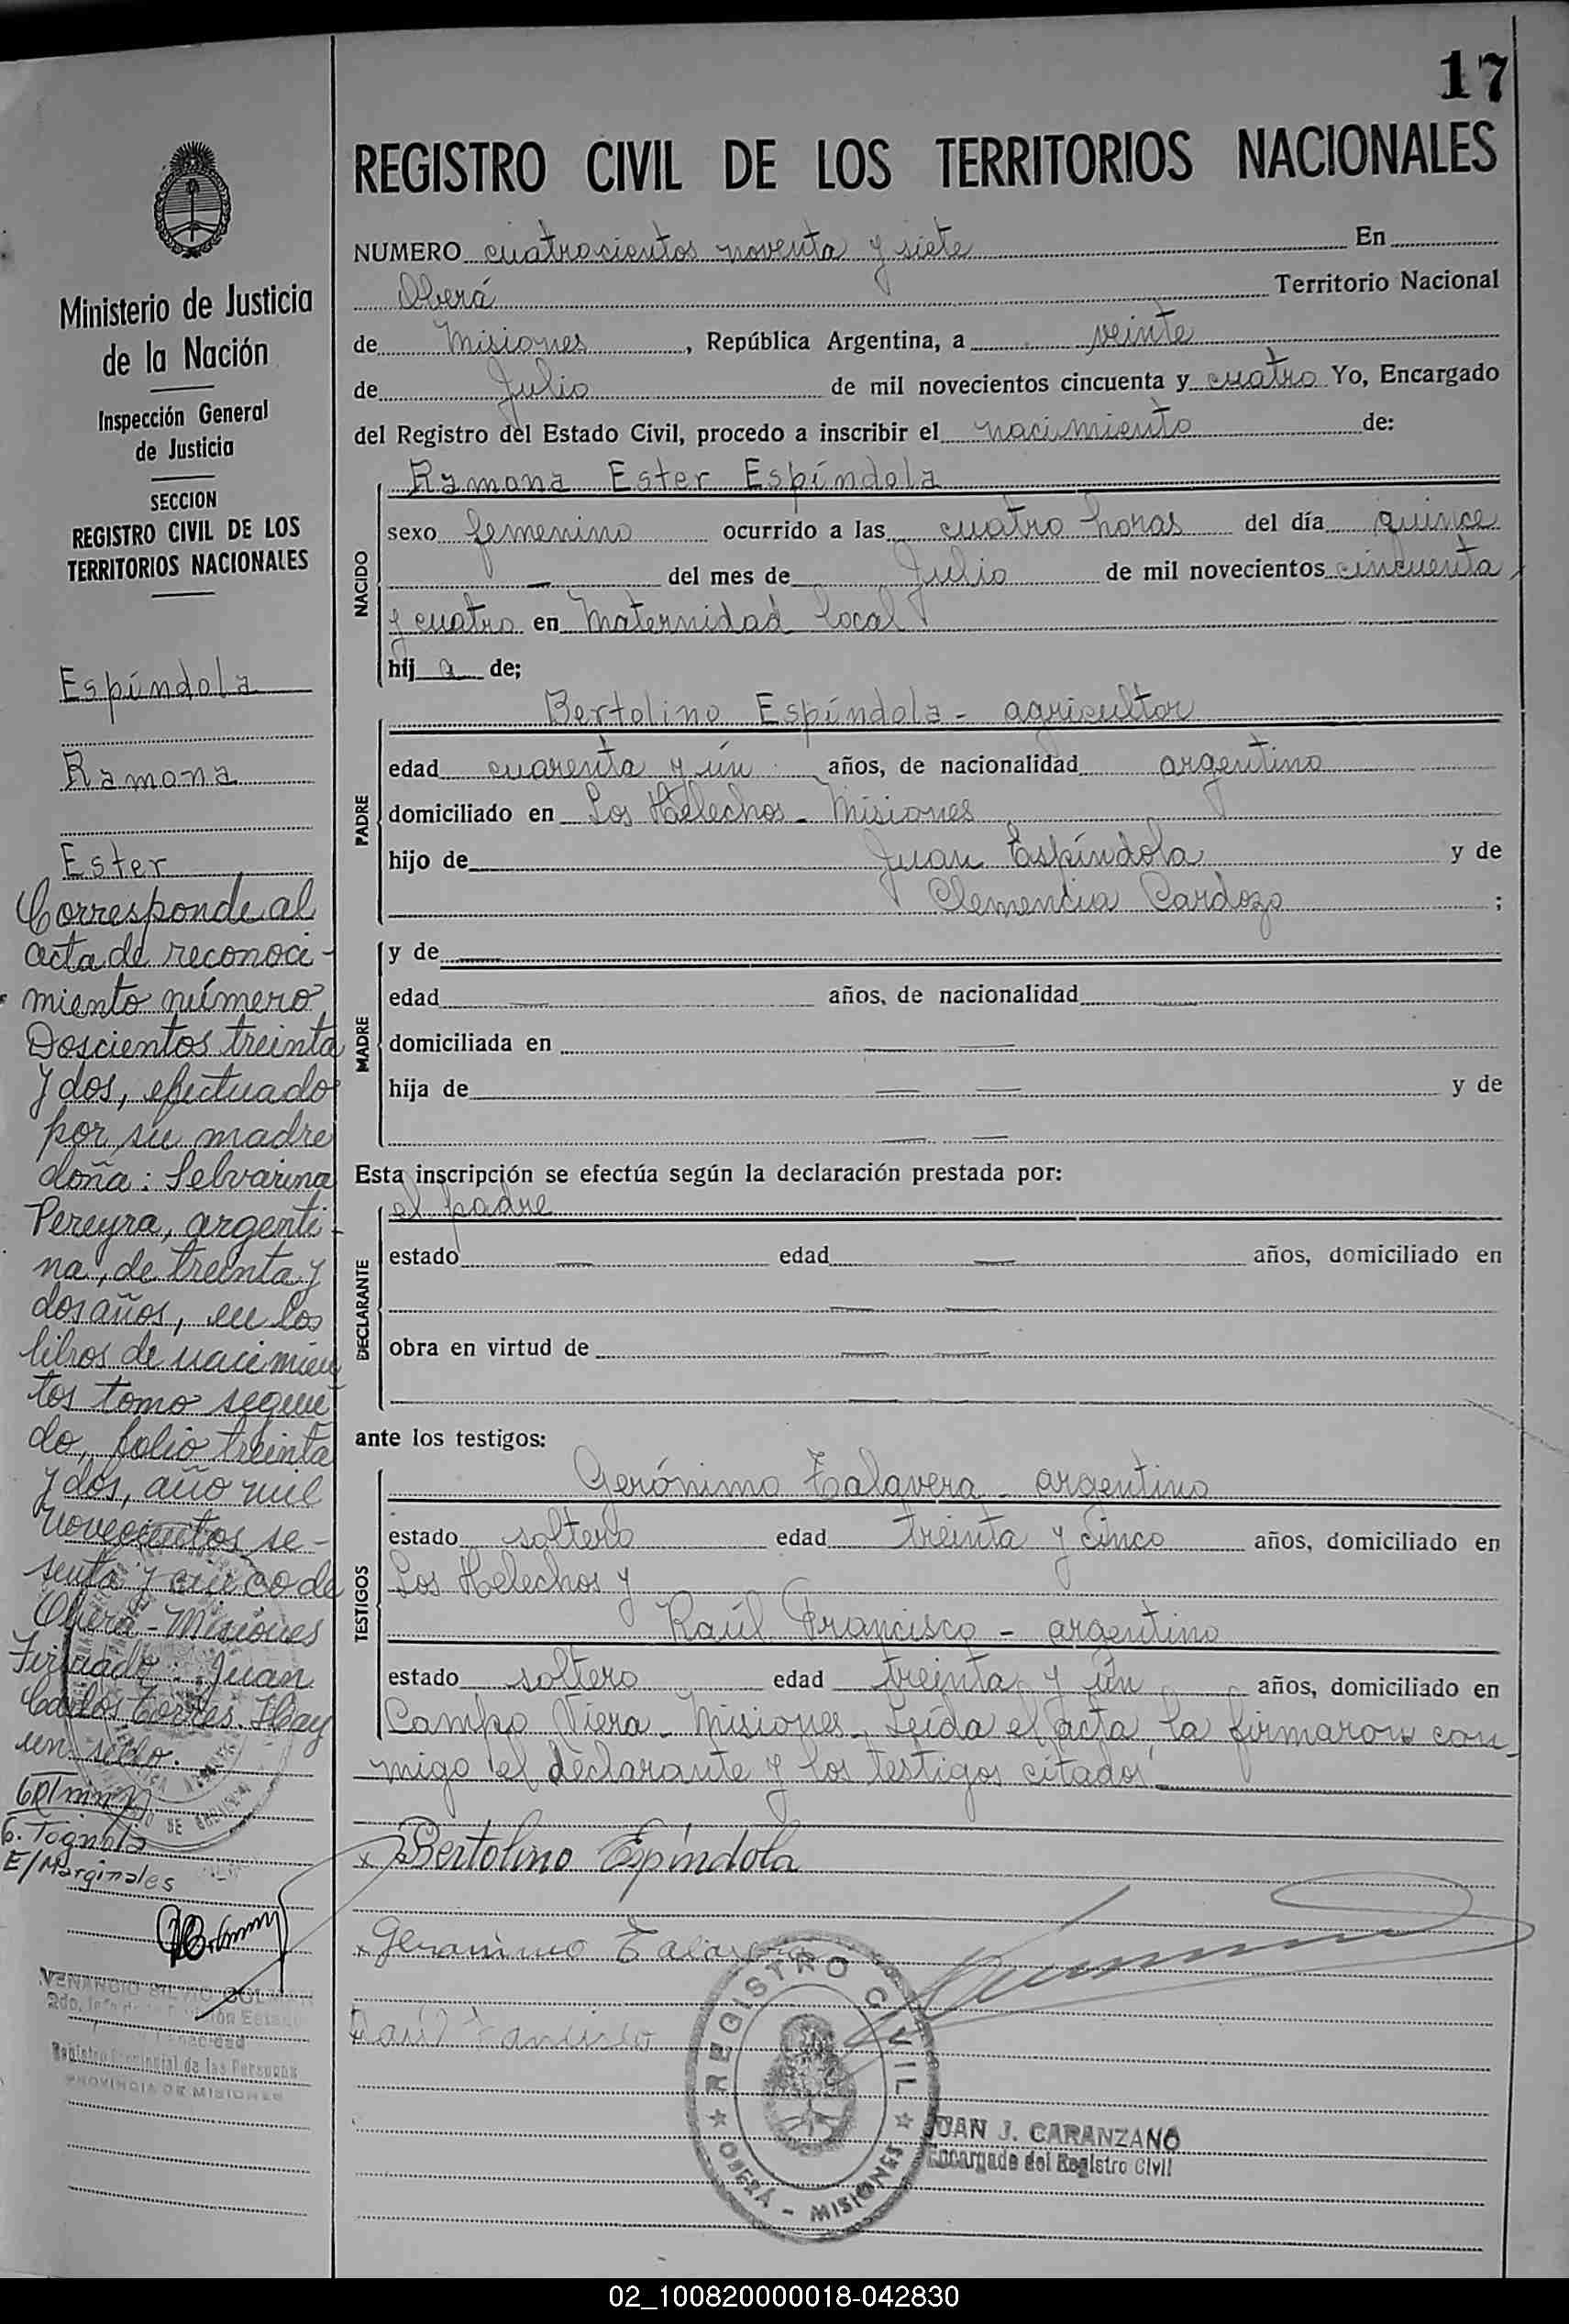 17
REGISTRO CIVIL DE LOS TERRITORIOS NACIONALES
NUMERO cuatrocientos noventa y siete En
Oberá Territorio Nacional
de Misiones, República Argentina, a veinte
de Julio de mil novecientos cincuenta y cuatro Yo, Encargado
del Registro del Estado Civil, procedo a inscribir el nacimiento de:
NACIDO
Ramona Ester Espíndola
sexo femenino ocurrido a las cuatro horas del día quince
— del mes de Julio de mil novecientos cincuenta
y cuatro en Maternidad local
hij a de;
PADRE
Bertolino Espíndola - agricultor
edad cuarenta y ún años, de nacionalidad argentino
domiciliado en Los Helechos - Misiones
hijo de Juan Espíndola y de
Clemencia Cardozo ;
MADRE
y de —
edad — años, de nacionalidad —
domiciliada en — —
hija de — — y de
— —
Esta inscripción se efectúa según la declaración prestada por:
DECLARANTE
el padre
estado — edad — años, domiciliado en
— —
obra en virtud de — —
— —
ante los testigos:
TESTIGOS
Gerónimo Talavera - argentino
estado soltero edad treinta y cinco años, domiciliado en
Los Helechos y
Raúl Francisco - argentino
estado soltero edad treinta y ún años, domiciliado en
Campo Viera - Misiones - Leída el acta la firmaron con-
migo el declarante y los testigos citados.
x Bertolino Espíndola
x Geronimo Talavera
x Raúl Francisco
REGISTRO CIVIL
OBERÁ - MISIONES
JUAN J. CARANZANO
Encargado del Registro Civil
Ministerio de Justicia
de la Nación
Inspección General
de Justicia
SECCION
REGISTRO CIVIL DE LOS
TERRITORIOS NACIONALES
Espíndola
Ramona
Ester
Corresponde al
acta de reconoci-
miento número
Doscientos treinta
y dos, efectuado
por su madre
doña: Selvarina
Pereyra, argenti-
na, de treinta y
dos años, en los
libros de nacimien
tos tomo segun
do, folio treinta
y dos, año mil
novecientos se-
senta y cinco de
Oberá - Misiones
Firmado: Juan
Carlos Torres. Hay
un sello.
G. Tognola
E/Marginales
VENANCIO SILVIO
Registro Provincial de las Personas
PROVINCIA DE MISIONES
02_100820000018-042830